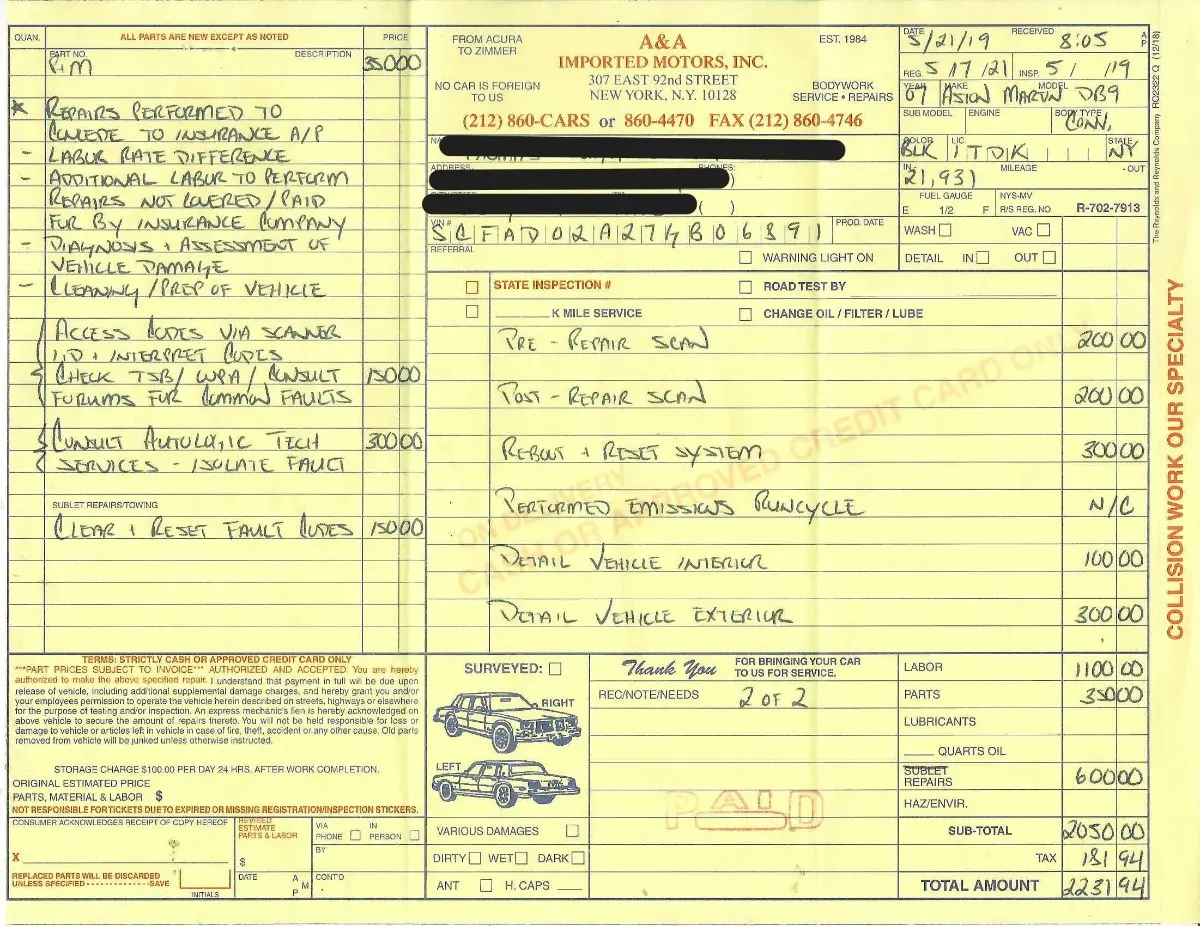 QUAN. ALL PARTS ARE NEW EXCEPT AS NOTED PRICE
PART NO. DESCRIPTION
R+M 350 00
* REPAIRS PERFORMED TO
CONCEDE TO INSURANCE A/P
- LABOR RATE DIFFERENCE
- ADDITIONAL LABOR TO PERFORM
REPAIRS NOT COVERED / PAID
FOR BY INSURANCE COMPANY
- DIAGNOSIS + ASSESSMENT OF
VEHICLE DAMAGE
- CLEANING / PREP OF VEHICLE
ACCESS CODES VIA SCANNER
I.D + INTERPRET CODES
CHECK TSB/ WPA / CONSULT 150 00
FORUMS FOR COMMON FAULTS
CONSULT AUTOLOGIC TECH 300 00
SERVICES - ISOLATE FAULT
SUBLET REPAIRS/TOWING
CLEAR + RESET FAULT CODES 150 00
TERMS: STRICTLY CASH OR APPROVED CREDIT CARD ONLY
***PART PRICES SUBJECT TO INVOICE*** AUTHORIZED AND ACCEPTED: You are hereby
authorized to make the above specified repair. I understand that payment in full will be due upon
release of vehicle, including additional supplemental damage charges, and hereby grant you and/or
your employees permission to operate the vehicle herein described on streets, highways or elsewhere
for the purpose of testing and/or inspection. An express mechanic's lien is hereby acknowledged on
above vehicle to secure the amount of repairs thereto. You will not be held responsible for loss or
damage to vehicle or articles left in vehicle in case of fire, theft, accident or any other cause. Old parts
removed from vehicle will be junked unless otherwise instructed.
STORAGE CHARGE $100.00 PER DAY 24 HRS. AFTER WORK COMPLETION.
ORIGINAL ESTIMATED PRICE
PARTS, MATERIAL & LABOR $
NOT RESPONSIBLE FOR TICKETS DUE TO EXPIRED OR MISSING REGISTRATION/INSPECTION STICKERS.
CONSUMER ACKNOWLEDGES RECEIPT OF COPY HEREOF
X
REPLACED PARTS WILL BE DISCARDED
UNLESS SPECIFIED - - - - - - - - - - - - - - -SAVE
INITIALS
REVISED
ESTIMATE
PARTS & LABOR
$
DATE A
M
P
VIA
PHONE
IN
PERSON
BY
CONT'D
FROM ACURA
TO ZIMMER
A&A
IMPORTED MOTORS, INC.
EST. 1984
NO CAR IS FOREIGN
TO US
307 EAST 92nd STREET
NEW YORK, N.Y. 10128
BODYWORK
SERVICE • REPAIRS
(212) 860-CARS or 860-4470 FAX (212) 860-4746
ADDRESS PHONES:
)
( )
VIN #
SCFAD02A274B06391
PROD. DATE
REFERRAL
WARNING LIGHT ON
STATE INSPECTION # ROAD TEST BY
K MILE SERVICE CHANGE OIL / FILTER / LUBE
PRE - REPAIR SCAN 200 00
POST - REPAIR SCAN 200 00
REBOOT + RESET SYSTEM 300 00
PERFORMED EMISSIONS RUNCYCLE N/C
DETAIL VEHICLE INTERIOR 100 00
DETAIL VEHICLE EXTERIOR 300 00
ON DELIVERY
CASH OR APPROVED CREDIT CARD ONLY
DATE 5/21/19 RECEIVED 8:05 A
P
REG. 5/17/21 INSP. 5/ /19
YEAR 07 MAKE ASTON MARTIN MODEL DB9
SUB MODEL ENGINE BODY TYPE CONV.
COLOR BLK LIC. 1TDK STATE NY
IN - 21,931 MILEAGE - OUT
FUEL GAUGE
E 1/2 F
NYS-MV
R/S REG. NO. R-702-7913
WASH VAC
DETAIL IN OUT
SURVEYED:
RIGHT
LEFT
VARIOUS DAMAGES
DIRTY WET DARK
ANT H. CAPS
Thank You FOR BRINGING YOUR CAR
TO US FOR SERVICE.
REC/NOTE/NEEDS
2 OF 2
PAID
LABOR 1100 00
PARTS 350 00
LUBRICANTS
QUARTS OIL
SUBLET
REPAIRS 600 00
HAZ/ENVIR.
SUB-TOTAL 2050 00
TAX 181 94
TOTAL AMOUNT 2231 94
The Reynolds and Reynolds Company RO2322 Q (12/18)
COLLISION WORK OUR SPECIALTY